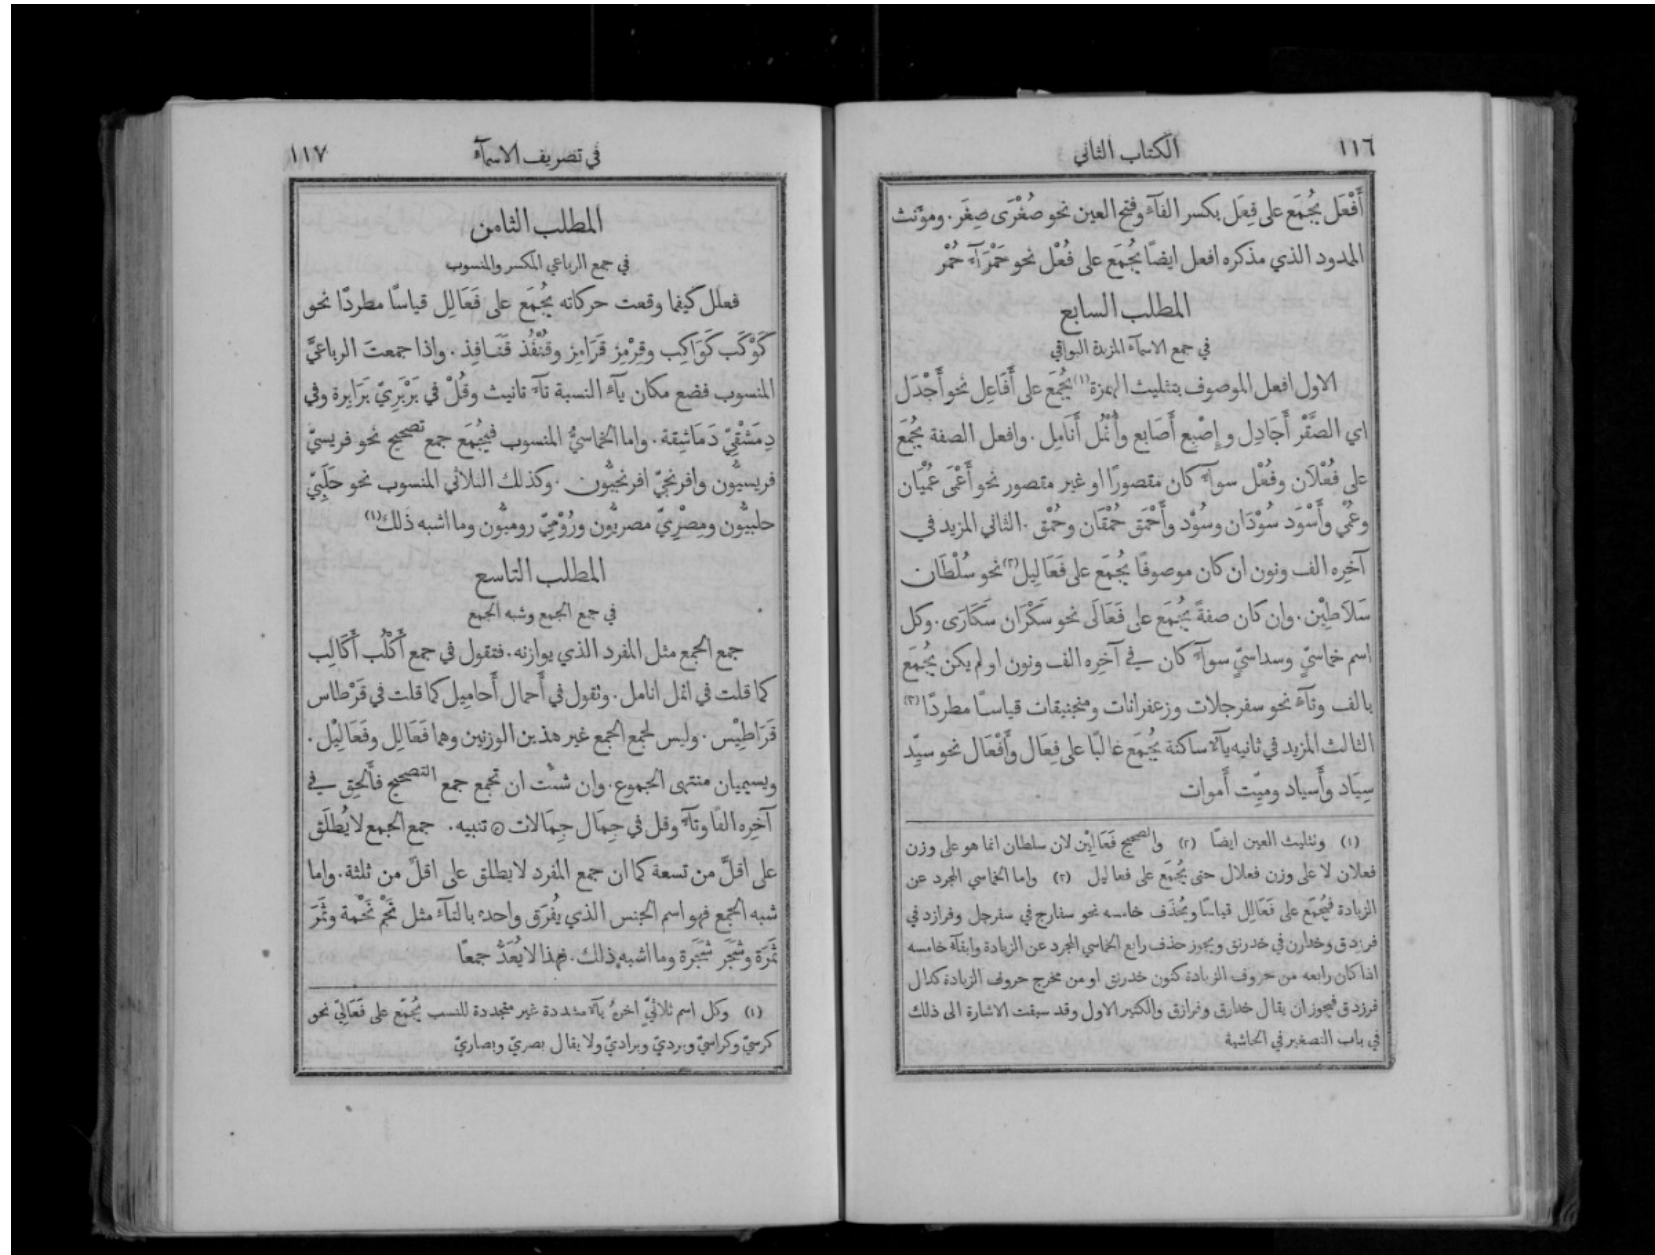 ١١٦
الكتاب الثاني
أَفْعَل يُجْمَع على فِعَل بكسر الفآء وفتح العين نحو صُغْرَى صِغَر. ومؤنث
الممدود الذي مذكره افعل ايضًا يُجْمَع على فُعْل نحو حَمْرَآء حُمْر
المطلب السابع
في جمع الاسمآء المزيدة البواقي
الاول افعل الموصوف بتثليث الهمزة (١) يُجْمَع على أَفَاعِل نحو أَجْدَل
اي الصَّقْر أَجَادِل وإِصْبِع أَصَابِع وأُنْمُل أَنَامِل. وافعل الصفة يُجْمَع
على فُعْلَان وفُعْل سوآء كان مقصورًا او غير مقصور نحو أَعْمَى عُمْيَان
وعُمْي وأَسْوَد سُوْدَان وسُوْد وأَحْمَق حُمْقَان وحُمْق. الثاني المزيد في
آخِره الف ونون ان كان موصوفًا يُجْمَع على فَعَالِيل (٢) نحو سُلْطَان
سَلَاطِيْن. وان كان صفةً يُجْمَع على فَعَالَى نحو سَكْرَان سَكَارَى. وكل
اسم خماسيّ وسداسيّ سوآء كان في آخِره الف ونون او لم يكن يُجْمَع
بالف وتآء نحو سفرجلات وزعفرانات ومنجنيقات قياسًا مطردًا (٣)
الثالث المزيد في ثانيه يآء ساكنة يُجْمَع غالبًا على فِعَال وأَفْعَال نحو سيّد
سِيَاد وأَسياد وميّت أَموات
(١) وتثليث العين ايضًا (٢) والصحيح فَعَالِيْن لان سلطان انما هو على وزن
فعلان لا على وزن فعلال حتى يُجْمَع على فعاليل (٢) واما الخماسي المجرد عن
الزيادة فيُجْمَع على فَعَالِل قياسًا ويُحذَف خامسه نحو سفارج في سفرجل وفرازد في
فرزدق وخدارن في خدرنق ويجوز حذف رابع الخماسي المجرد عن الزيادة وابقآء خامسه
اذا كان رابعه من حروف الزيادة كنون خدرنق او من مخرج حروف الزيادة كدال
فرزدق فيجوز ان يقال خدارق وفرازق والكثير الاول وقد سبقت الاشارة الى ذلك
في باب التصغير في الحاشية
في تصريف الاسمآء
١١٧
المطلب الثامن
في جمع الرباعي المكسر والمنسوب
فعلل كيفما وقعت حركاته يُجْمَع على فَعَالِل قياسًا مطردًا نحو
كَوْكَب كَوَاكِب وقِرْمِز قَرَامِز وقُنْفُذ قَنَافِذ. واذا جمعتَ الرباعيَّ
المنسوب فضع مكان يآء النسبة تآء تانيث وقُلْ في بَرْبَرِيّ بَرَابِرة وفي
دِمَشْقِيّ دَمَاشِقة. واما الخماسيُّ المنسوب فيُجْمَع جمع تصحيح نحو فريسيّ
فريسيُّون وافرنجيّ افرنجيُّون. وكذلك الثلاثي المنسوب نحو حَلَبِيّ
حلبيُّون ومِصْرِيّ مصريُّون ورُوْمِيّ روميُّون وما اشبه ذلك (١)
المطلب التاسع
في جمع الجمع وشبه الجمع
جمع الجمع مثل المفرد الذي يوازنه. فتقول في جمع أَكْلُب أَكَالِب
كما قلت في انمل انامل. وتقول في أَحمال أَحامِيل كما قلت في قَرْطاس
قَرَاطِيْس. وليس لجمع الجمع غير هذين الوزنين وهما فَعَالِل وفَعَالِيْل.
ويسميان منتهى الجموع. وان شئت ان تجمع جمع التصحيح فأَلحِق في
آخِره الفًا وتآء وقل في جِمَال جِمَالات ۞ تنبيه. جمع الجمع لا يُطلَق
على اقلَّ من تسعة كما ان جمع المفرد لا يطلق على اقلّ من ثلثة. واما
شبه الجمع فهو اسم الجنس الذي يُفرَق واحده بالتآء مثل نَخْم نَخْمة وثَمَر
ثَمَرَة وشَجَر شَجَرة وما اشبه ذلك. فهذا لا يُعَدُّ جمعًا
(١) وكل اسم ثلاثيّ اخرهُ يآء مشددة غير متجددة للنسب يُجْمَع على فَعَالِيّ نحو
كرسيّ وكراسيّ وبرديّ وبراديّ ولا يقال بصريّ وبصاريّ